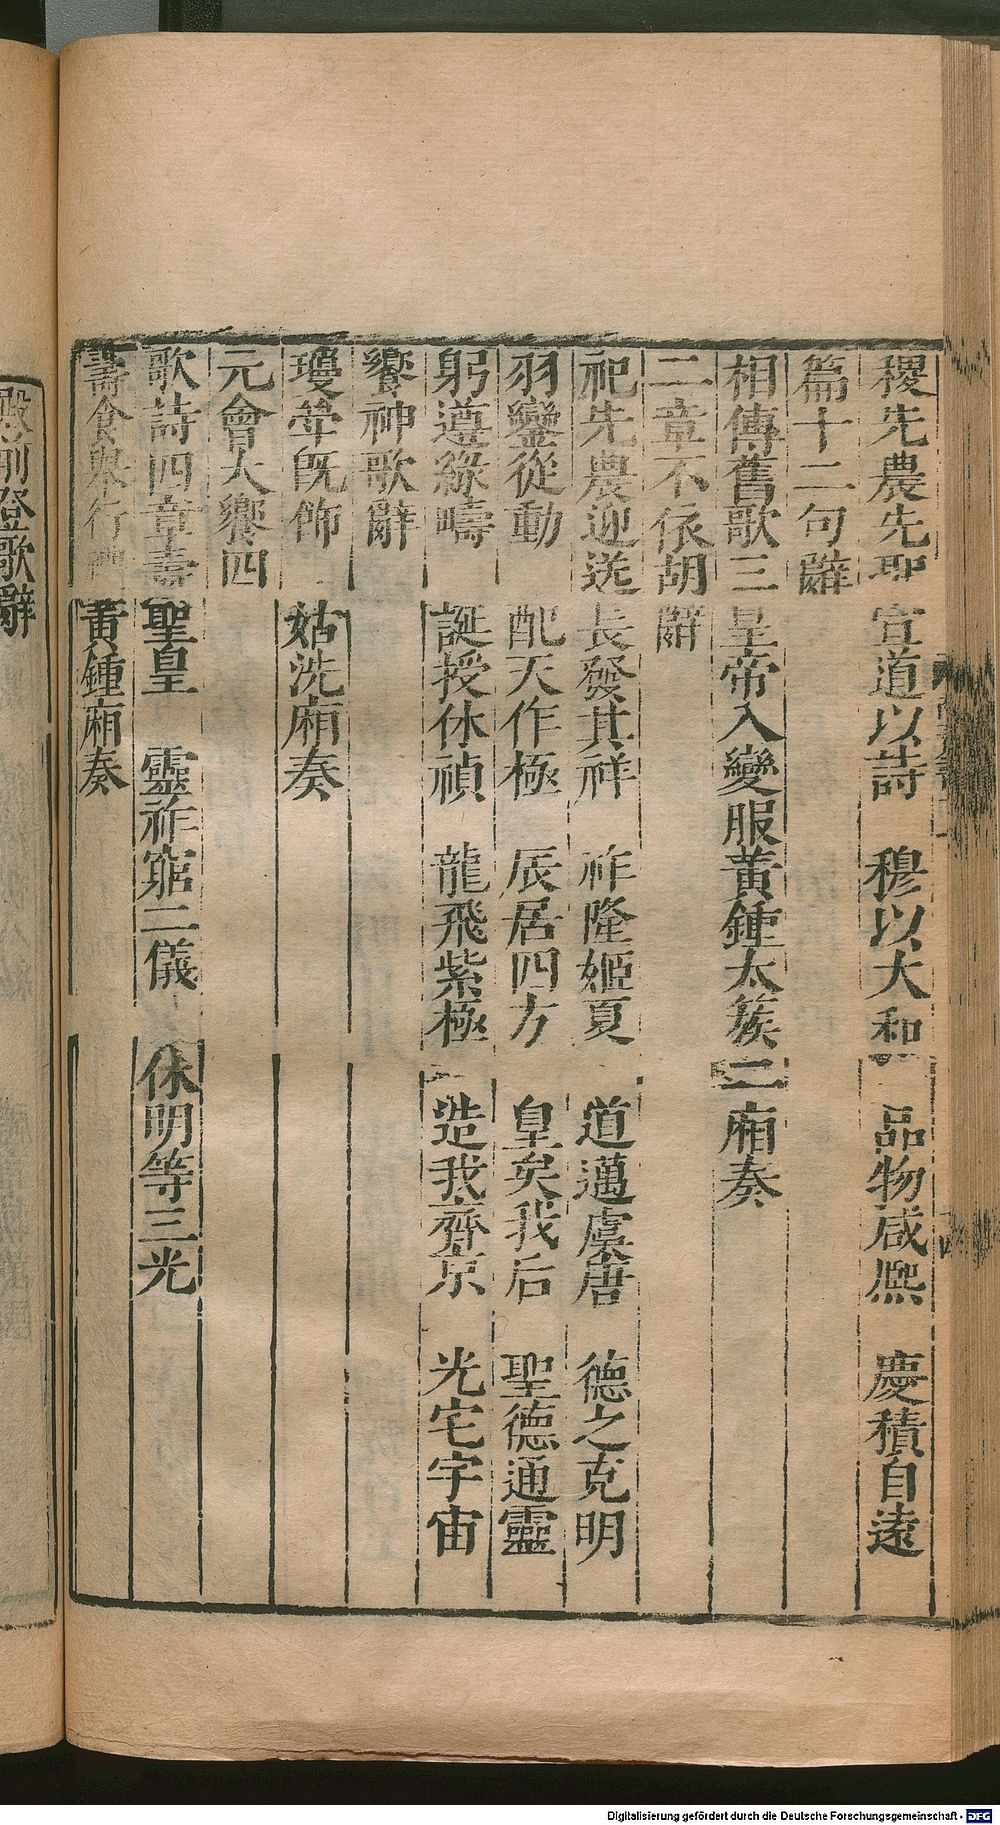 稷先農先聖 宣道以詩 穆以大和 品物咸熙 慶積自遠
篇十二句辭
相傳舊歌三 皇帝入變服黃鍾太簇二廂奏
二章不依胡 辭
祀先農迎送 長發其祥 祚隆姬夏 道邁虞唐 德之克明
羽鑾從動 配天作極 辰居四方 皇矣我后 聖德通靈
躬遵綠疇 誕授休禎 龍飛紫極 造我齊京 光宅宇宙
饗神歌辭
瓊斝旣飾 姑洗廂奏
元會大饗四
歌詩四章壽 聖皇 靈祚窮二儀 休明等三光
壽食舉行 黃鍾廂奏
殿前登歌辭
Digitalisierung gefördert durch die Deutsche Forschungsgemeinschaft - DFG